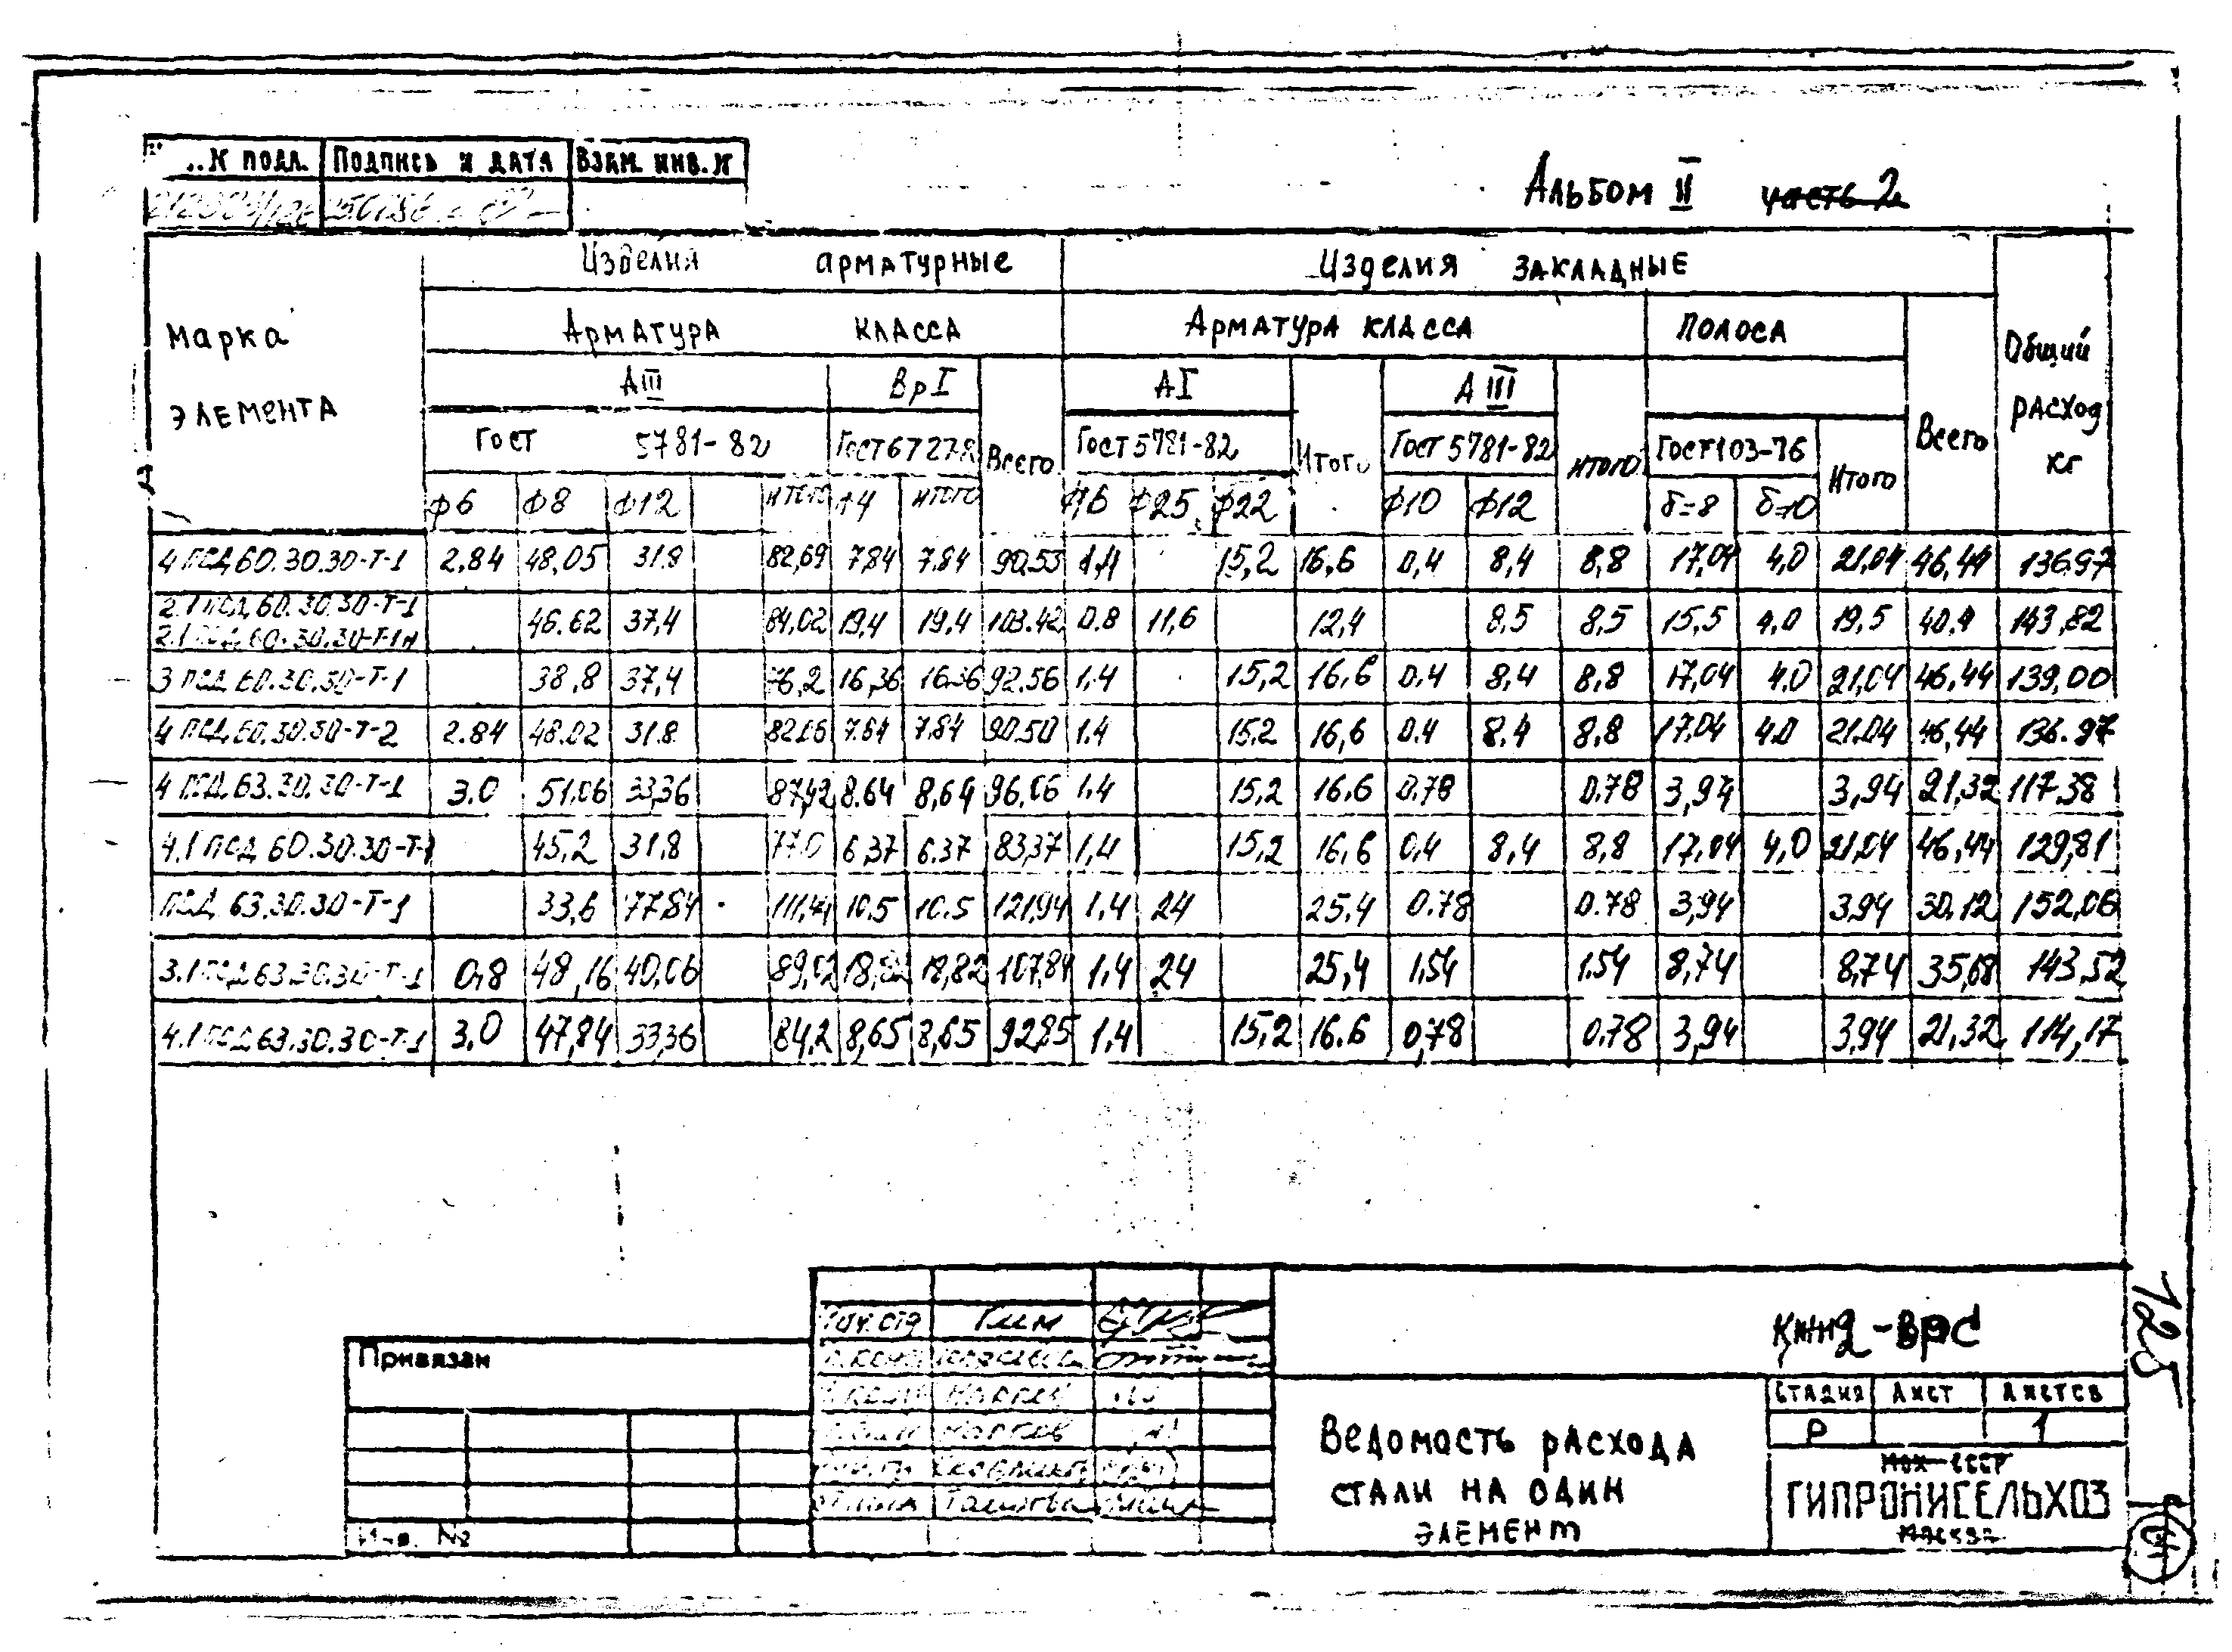 ..N подл. Подпись и дата Взам. инв. N
Альбом II часть 2
Марка элемента
Изделия арматурные
Изделия закладные
Общий расход кг
Арматура класса
Арматура класса
Полоса
Всего
АIII ВрI Всего АI Итого АIII Итого
Гост 5781-82 Гост 6727-8 Гост 5781-82 Гост 5781-82 Гост 103-76 Итого
ф6 ф8 ф12 итого ф4 итого ф6 ф25 ф22 ф10 ф12 δ=8 δ=10
4 ПСД 60.30.30-Т-1 2.84 48,05 31.8 82,69 7,84 7.84 90,53 1,4 15,2 16,6 0,4 8,4 8,8 17,04 4,0 21,04 46,44 136.97
2.1 ПСД 60.30.30-Т-1
2.1 ПСД 60.30.30-Т-1н 46.62 37,4 84,02 19,4 19,4 103.42 0.8 11,6 12,4 8.5 8,5 15,5 4,0 19,5 40,4 143,82
3 ПСД 60.30.30-Т-1 38,8 37,4 76,2 16,36 16.36 92.56 1.4 15,2 16,6 0.4 8,4 8,8 17,04 4,0 21,04 46,44 139,00
4 ПСД 60.30.30-Т-2 2.84 48.02 31.8 82.66 7.84 7.84 90.50 1.4 15,2 16,6 0.4 8.4 8,8 17.04 4.0 21.04 46,44 136.97
4 ПСД 63.30.30-Т-1 3.0 51,06 33,36 87,42 8.64 8,64 96.06 1.4 15,2 16.6 0.78 0.78 3,94 3,94 21,32 117.38
4.1 ПСД 60.30.30-Т-1 45,2 31,8 77.0 6,37 6.37 83,37 1,4 15,2 16,6 0,4 8,4 8,8 17,04 4,0 21,04 46,44 129,81
ПСД 63.30.30-Т-1 33,6 77,84 111,44 10.5 10.5 121,94 1,4 24 25,4 0.78 0.78 3,94 3,94 30,12 152,06
3.1 ПСД 63.30.30-Т-1 0,8 48,16 40,06 89,02 18,82 18,82 107,84 1,4 24 25,4 1,54 1.54 8,74 8,74 35,68 143,52
4.1 ПСД 63.30.30-Т-1 3.0 47,84 33,36 84,2 8,65 8,65 92,85 1.4 15,2 16.6 0,78 0.78 3,94 3,94 21,32 114,17
125
КЖИ2-ВРС
Привязан
Инв. №
Ведомость расхода
стали на один
элемент
Стадия Лист Листов
Р 1
МСХ СССР
ГИПРОНИСЕЛЬХОЗ
Москва